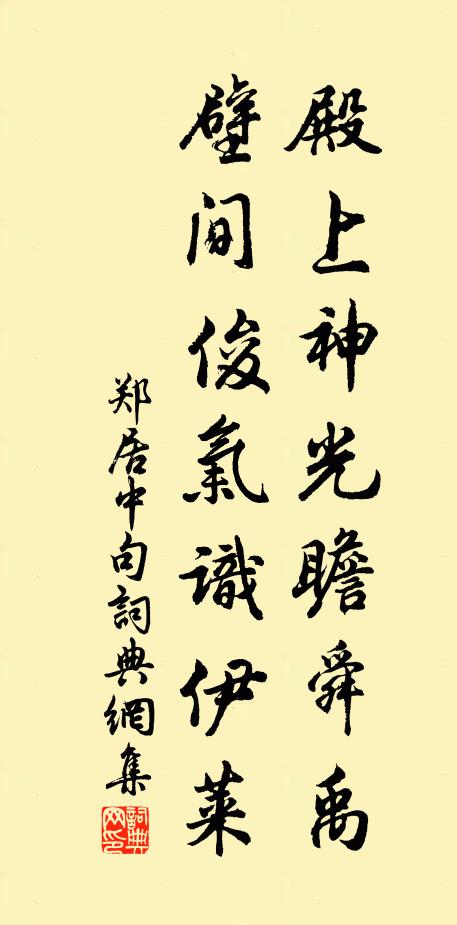 殿上神光瞻舜禹
壁間俊氣識伊萊
郑居中句詞典網集
詞典网印